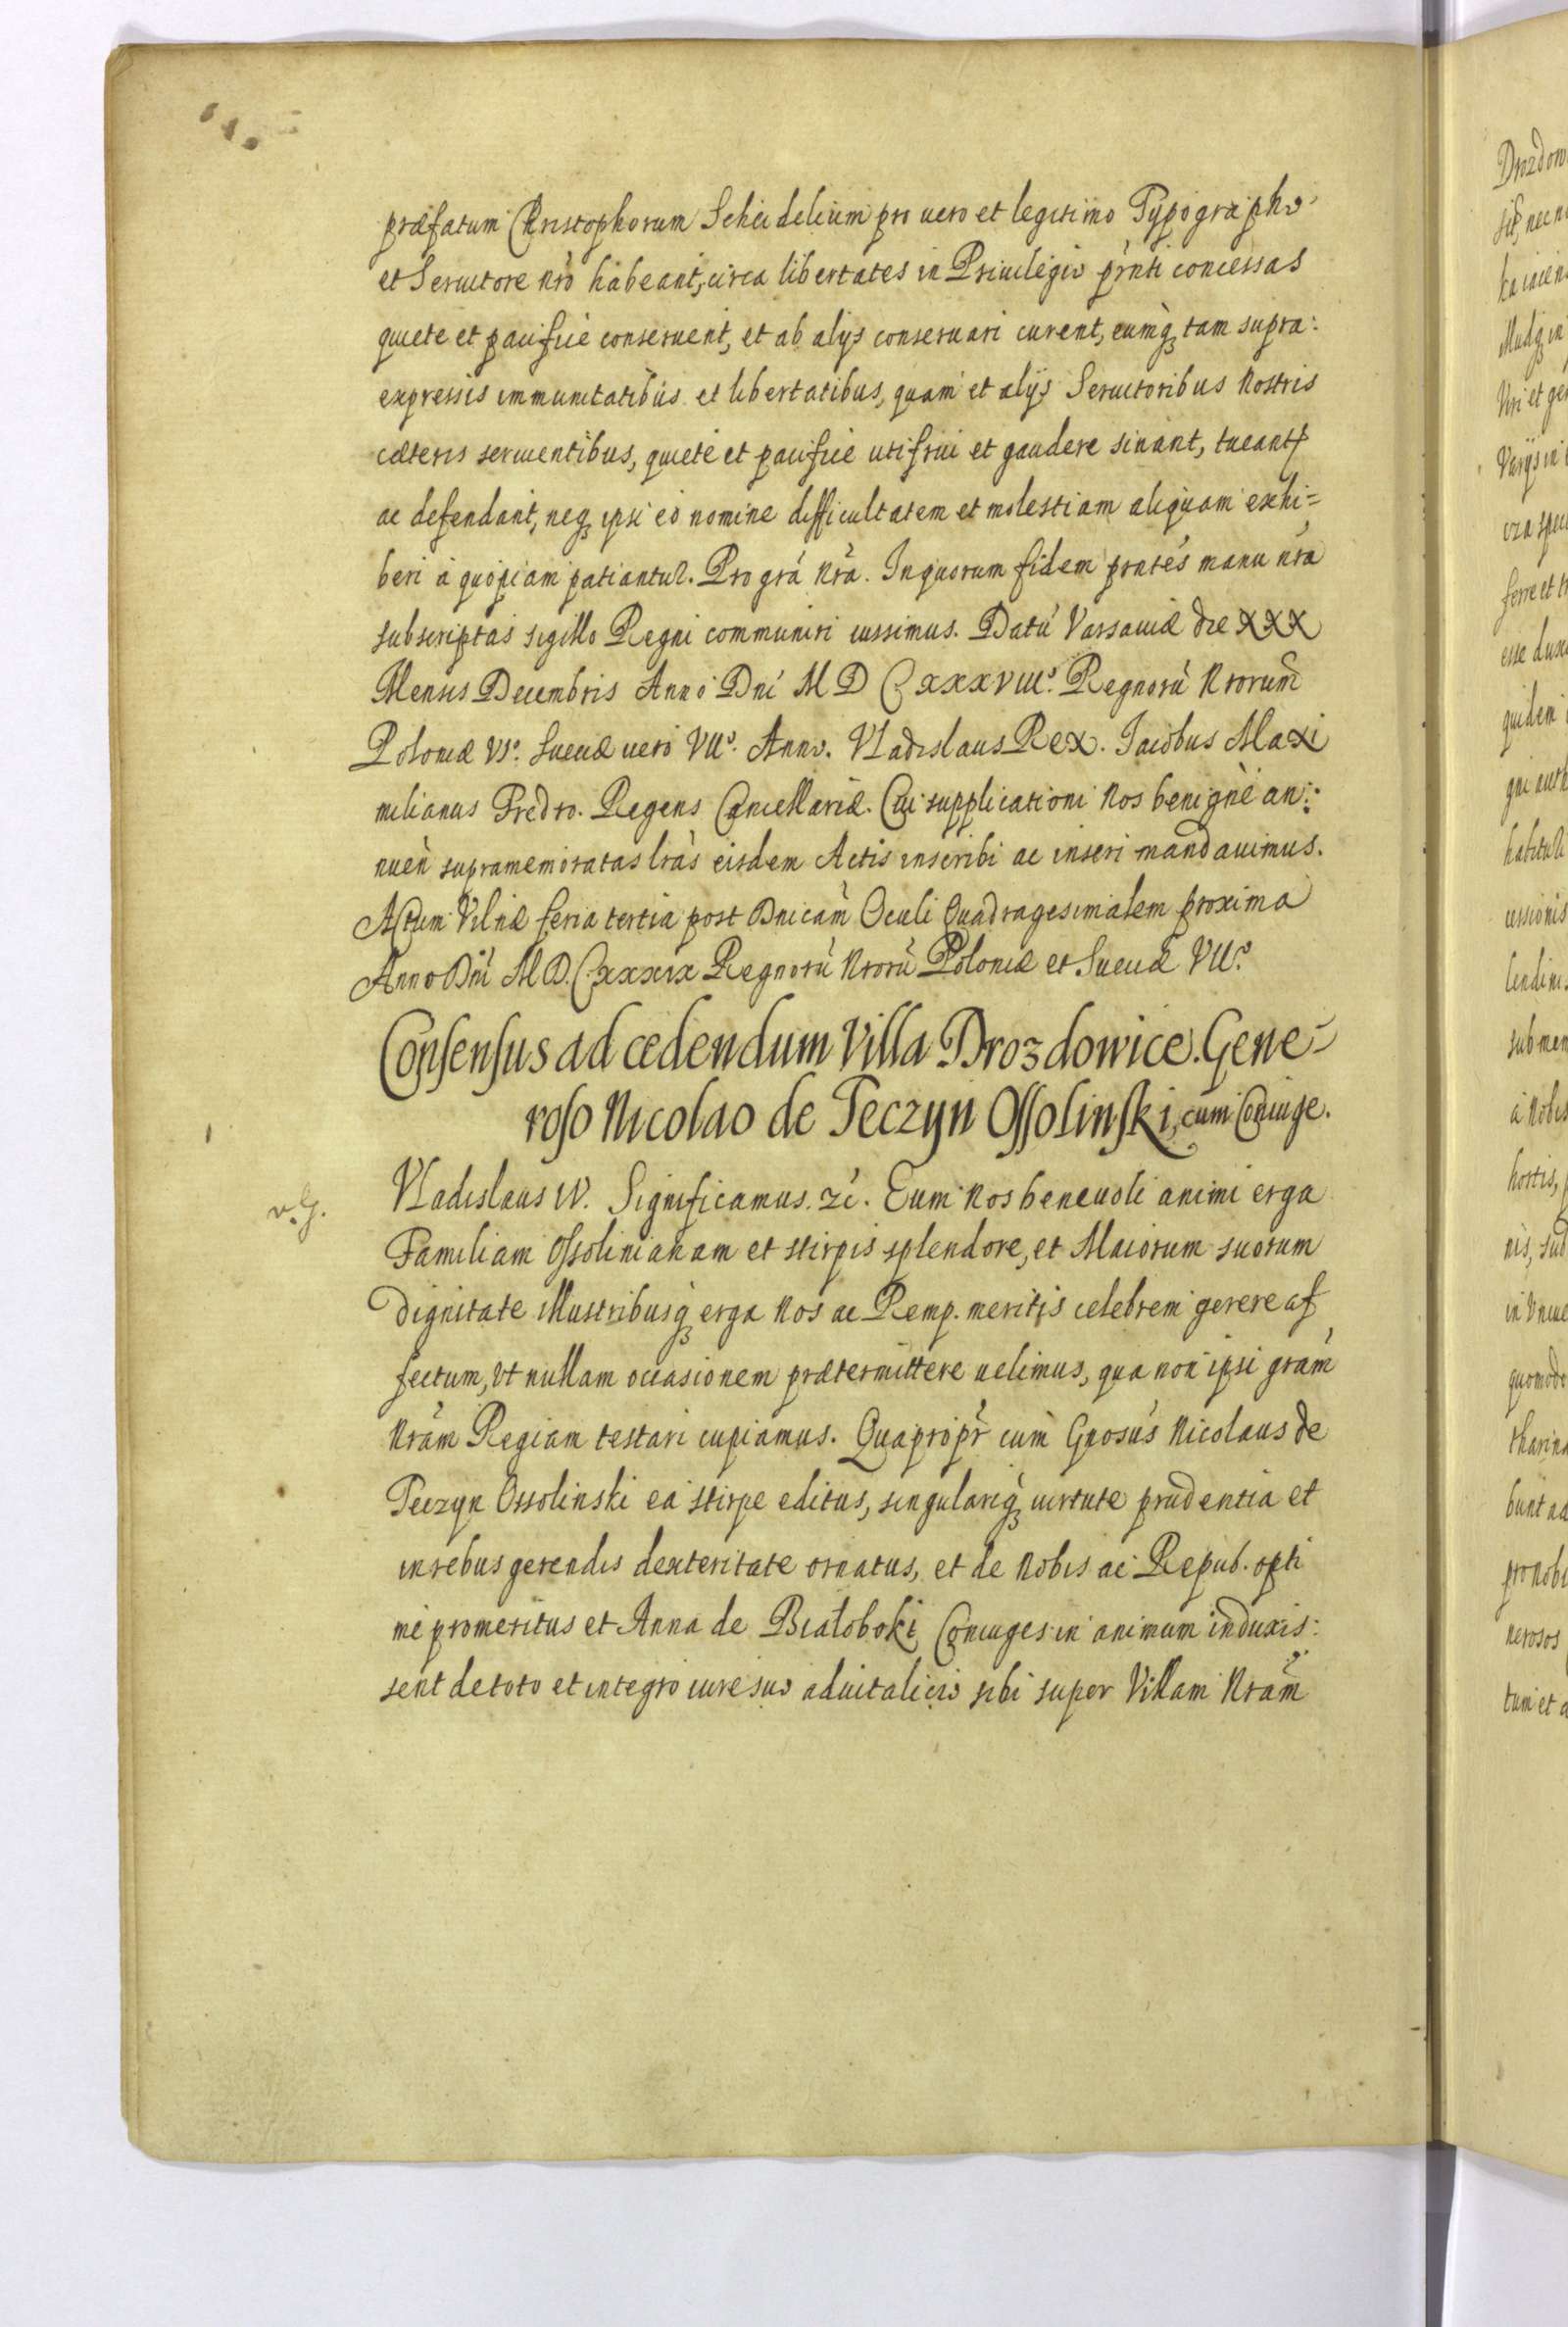 præfatum Christophorum Scheidelium pro uero et legitimo Typographo
et Seruitore nrõ habeant, circa libertates in Priuilegio prńti concessas
quiete et pacificè conseruent, et ab alijs conseruari curent, eumq̨ tam supra:
expressis immunitatibus et libertatibus, quam et alijs Seruitoribus Nostris
cæteris seruientibus, quietè et pacificè uti frui et gaudere sinant, tueantq̨
ac defendant, neq̨ ipsi eò nomine difficultatem et molestiam aliquam exhi=
beri à quopiam patiantur. Pro grã Nrã. In quorum fidem prntés manu nrã
subscriptas sigillo Regni communiri iussimus. Datũ Varsauiæ die XXX
Mensis Decembris Anno Dni M D CXXXVIIIº. Regnorũ Nrorum̃
Poloniæ VIº. Sueciæ uerò VIIº. Anno. Vladislaus Rex. Jacobus Maxi
milianus Fredro. Regens Cancellariæ. Cui supplicationi Nos benignè an:
nueñ supramemoratas lrãs eisdem Actis inscribi ac inseri mandauimus.
Actum Vilnæ feria tertia post Dnicam̃ Oculi Quadragesimalem proxima
Anno Dni M D. CXXXIX Regnorũ Nrorũ Poloniæ et Sueciæ VIIº
Consensus ad cedendum Villa Drozdowice. Gene-
roso Nicolao de Teczyn Ossolinski, cum Coniuge.
v. G.
Vladislaus IV. Significamus. &c̃. Eum Nos beneuoli animi erga
Familiam Ossolinianam et stirpis splendore, et Maiorum suorum
dignitate illustribusq̨ erga Nos ac Remp. meritis celebrem gerere af
fectum, Vt nullam occasionem prætermittere uelimus, qua non ipsi gram̃
Nram̃ Regiam testari cupiamus. Quapropr̃ cum Gnosús Nicolaus de
Teczyn Ossolinski ea stirpe editus, singulariq̨ uirtute prudentia et
in rebus gerendis dexteritate ornatus, et de Nobis ac Repub. opti
mè promeritus et Anna de Białoboki Coniuges in animum induxis:
sent de toto et integro iure suo aduitalicio sibi super Villam Nram̃